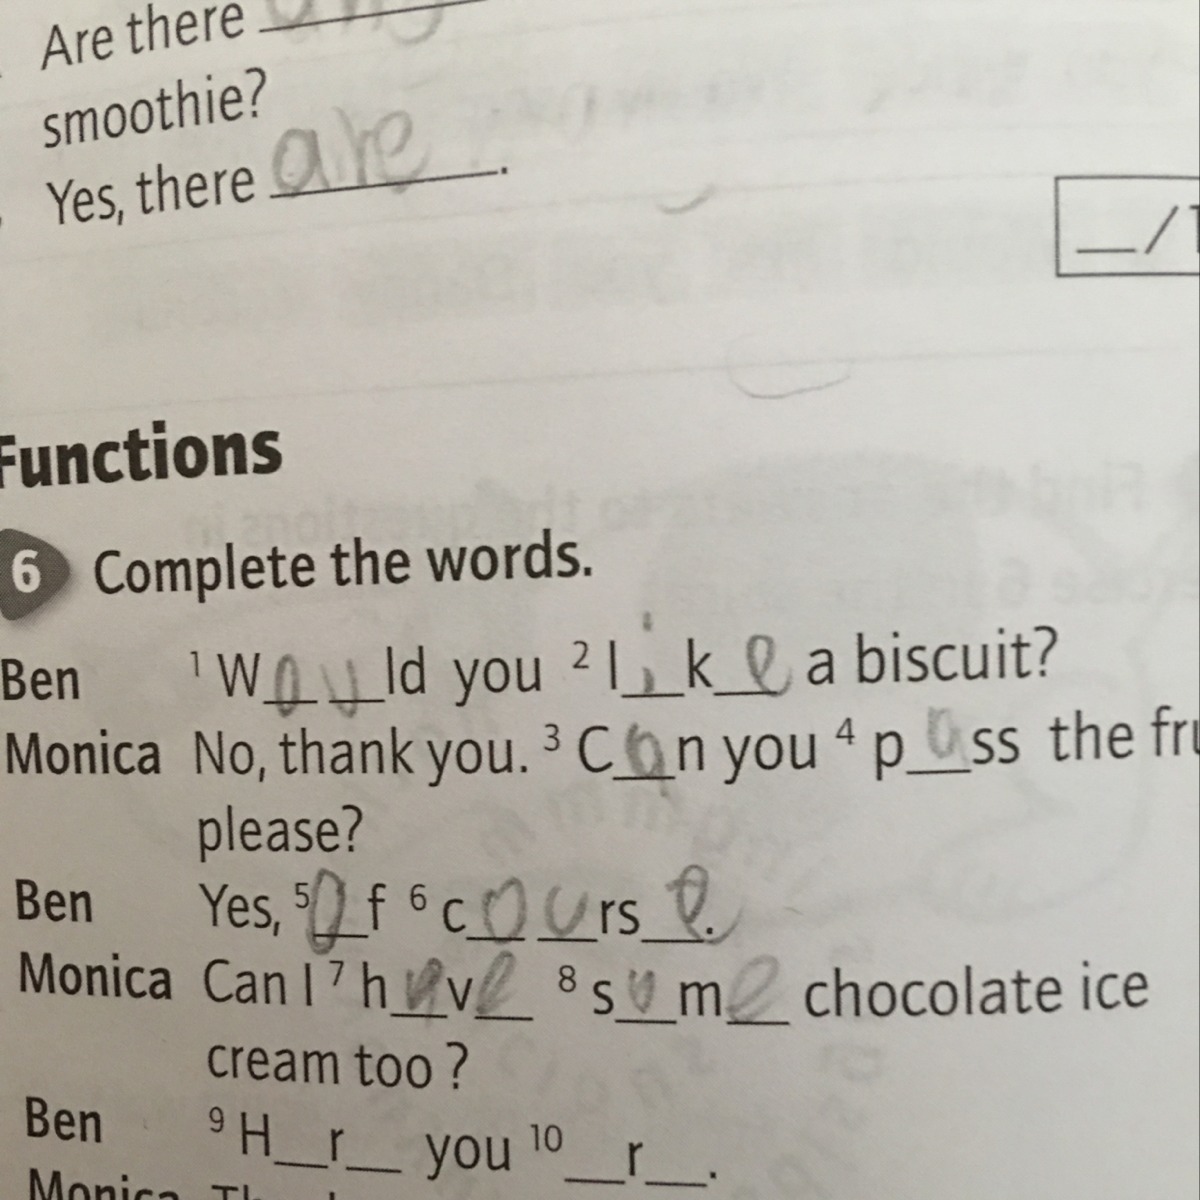 Are there any
smoothie?
Yes, there are.
__/1
Functions
6 Complete the words.
Ben 1 Would you 2 like a biscuit?
Monica No, thank you. 3 Can you 4 pass the fru
please?
Ben Yes, 5 of 6 course.
Monica Can I 7 have 8 some chocolate ice
cream too?
Ben 9 H__r__ you 10 __r__.
Monica